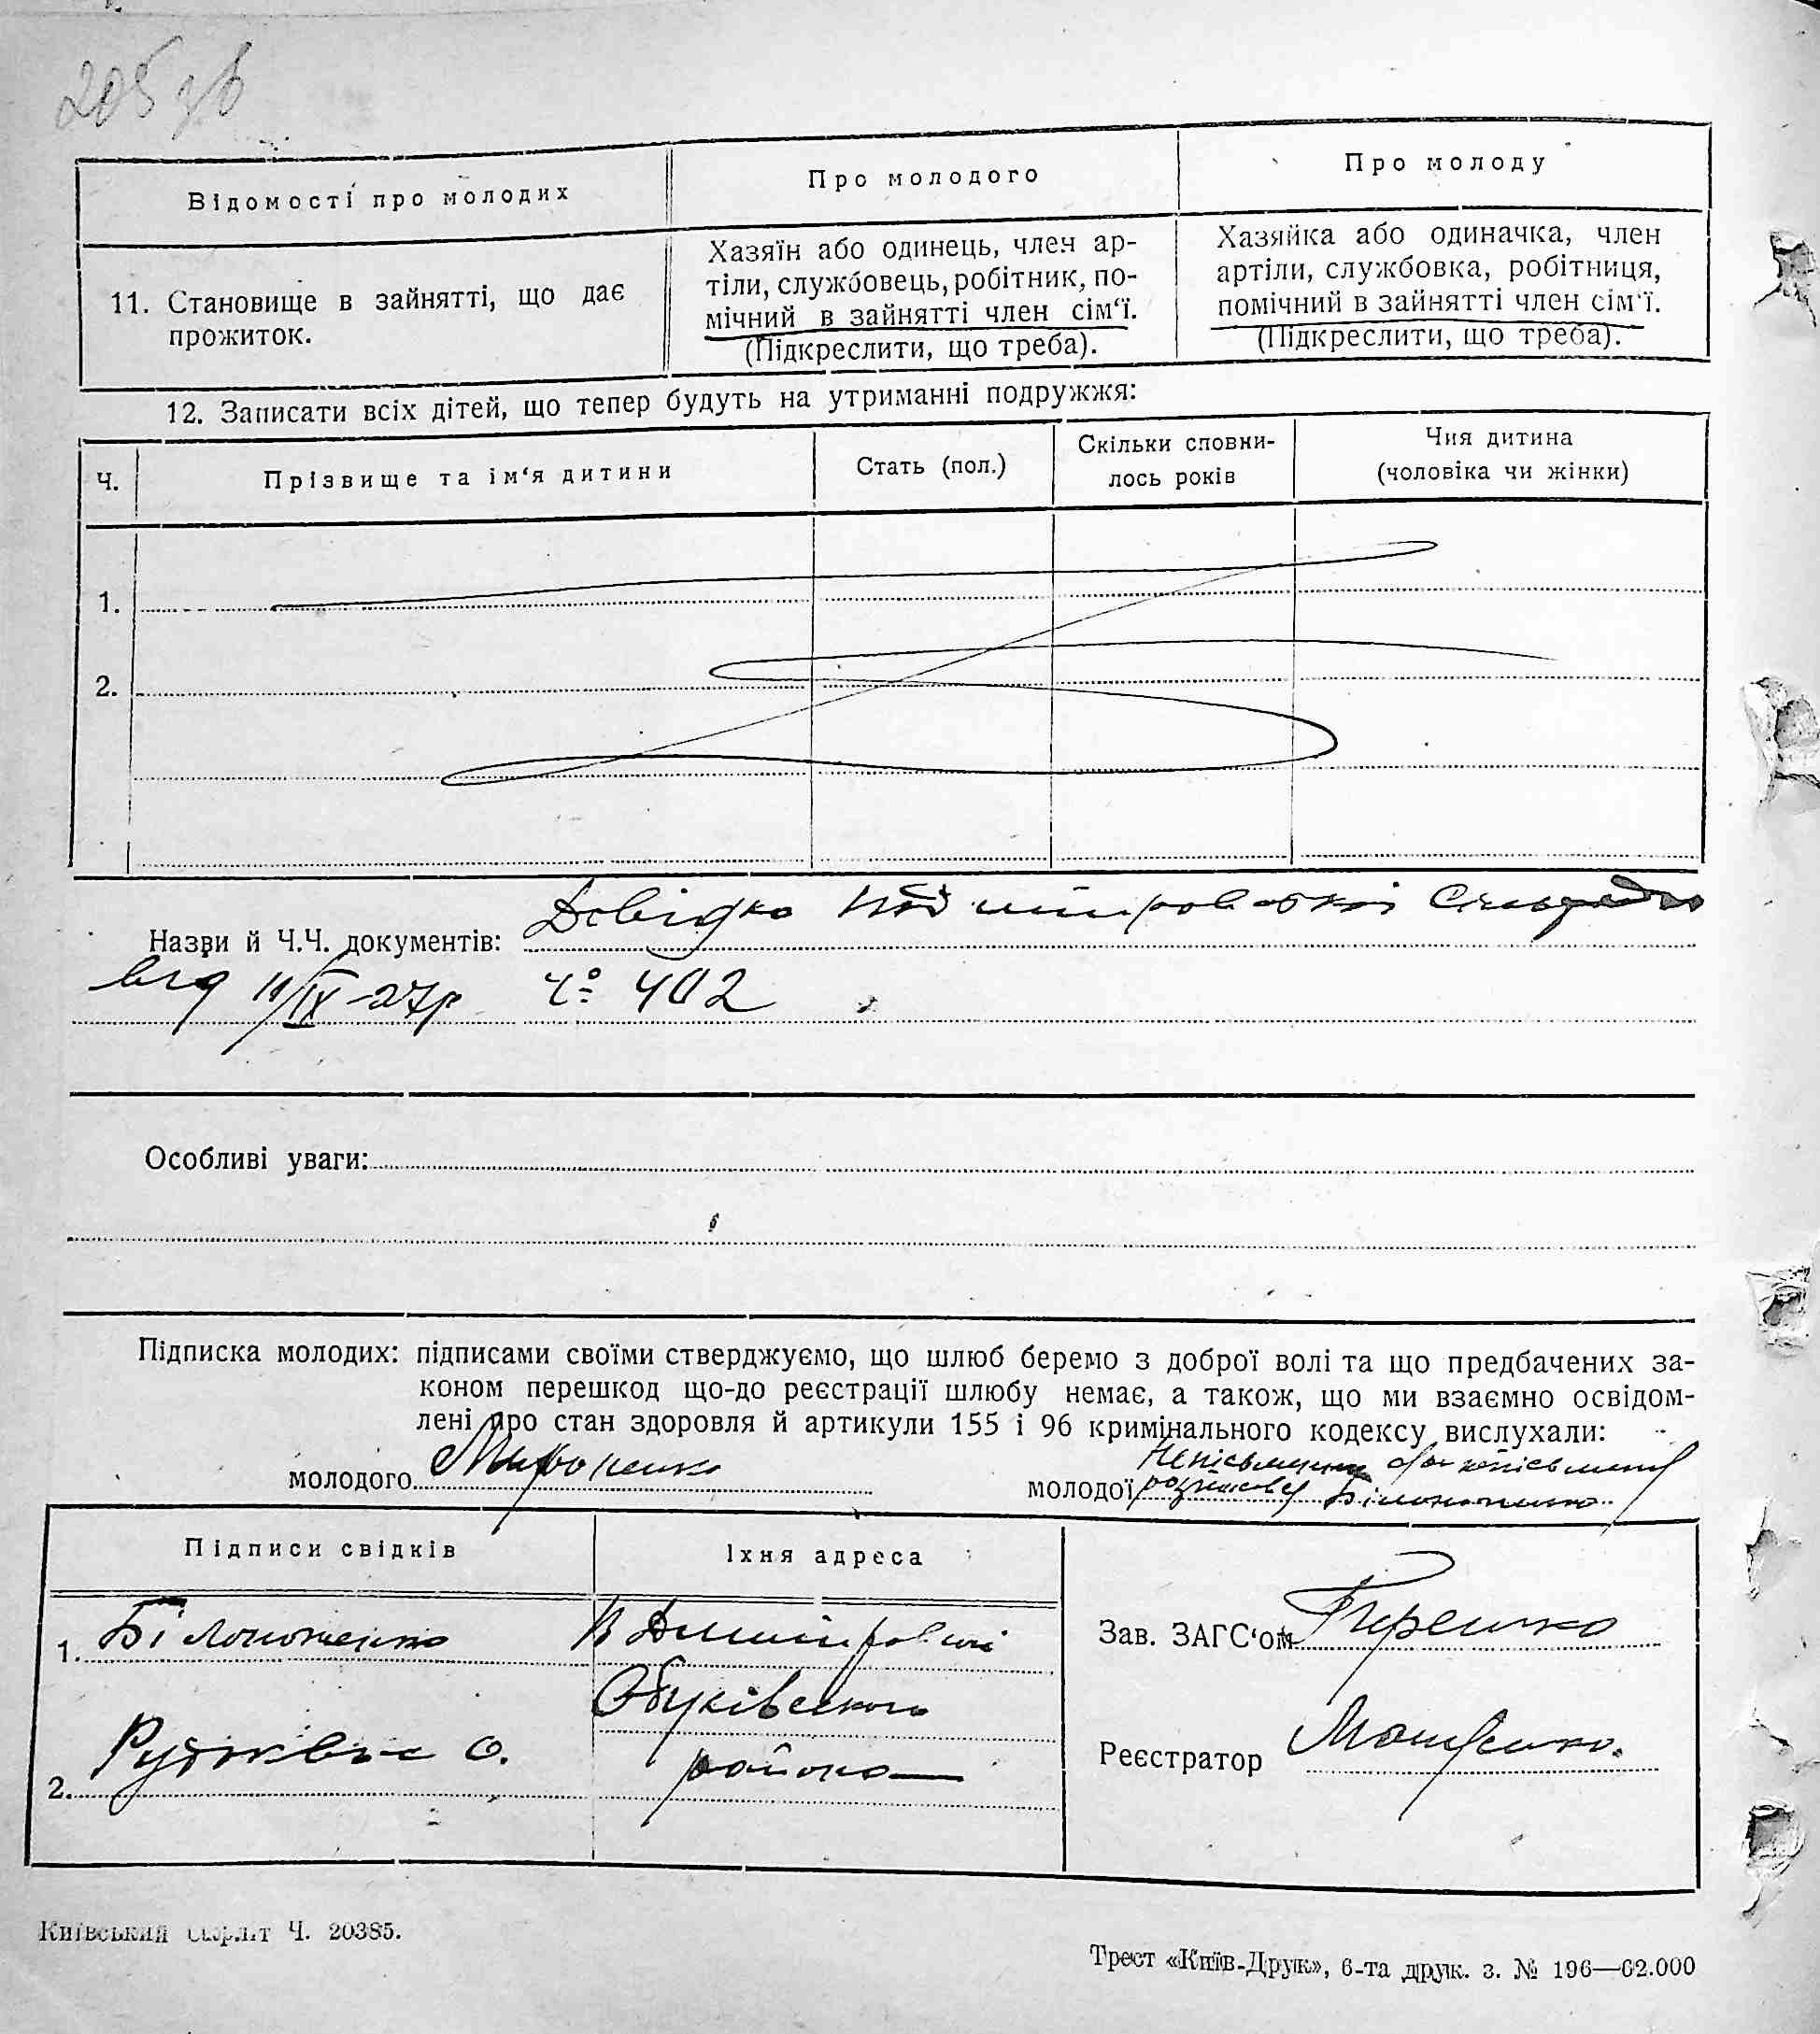 205 зв
Відомості про молодих
Про молодого
Про молоду
11. Становище в зайнятті, що дає
прожиток.
Хазяїн або одинець, член ар-
тіли, службовець, робітник, по-
мічний в зайнятті член сім‘ї.
(Підкреслити, що треба).
Хазяйка або одиначка, член
артіли, службовка, робітниця,
помічний в зайнятті член сім‘ї.
(Підкреслити, що треба).
12. Записати всіх дітей, що тепер будуть на утриманні подружжя:
Ч.
Прізвище та ім‘я дитини
Стать (пол.)
Скільки сповни-
лось років
Чия дитина
(чоловіка чи жінки)
1.
2.
Назви й Ч.Ч. документів: Довідка
від 11/IX-27р Ч० 402
Особливі уваги:
Підписка молодих: підписами своїми стверджуємо, що шлюб беремо з доброї волі та що предбачених за-
коном перешкод що-до реєстрації шлюбу немає, а також, що ми взаємно освідом-
лені про стан здоровля й артикули 155 і 96 кримінального кодексу вислухали:
молодого Мироненко
молодої
Підписи свідків
Їхня адреса
1. Білоноженко
Обуківського
2.
району
Зав. ЗАГС‘ом
Реєстратор
Київський Ч. 20385.
Трест «Київ-Друк», 6-та друк. з. № 196—62.000